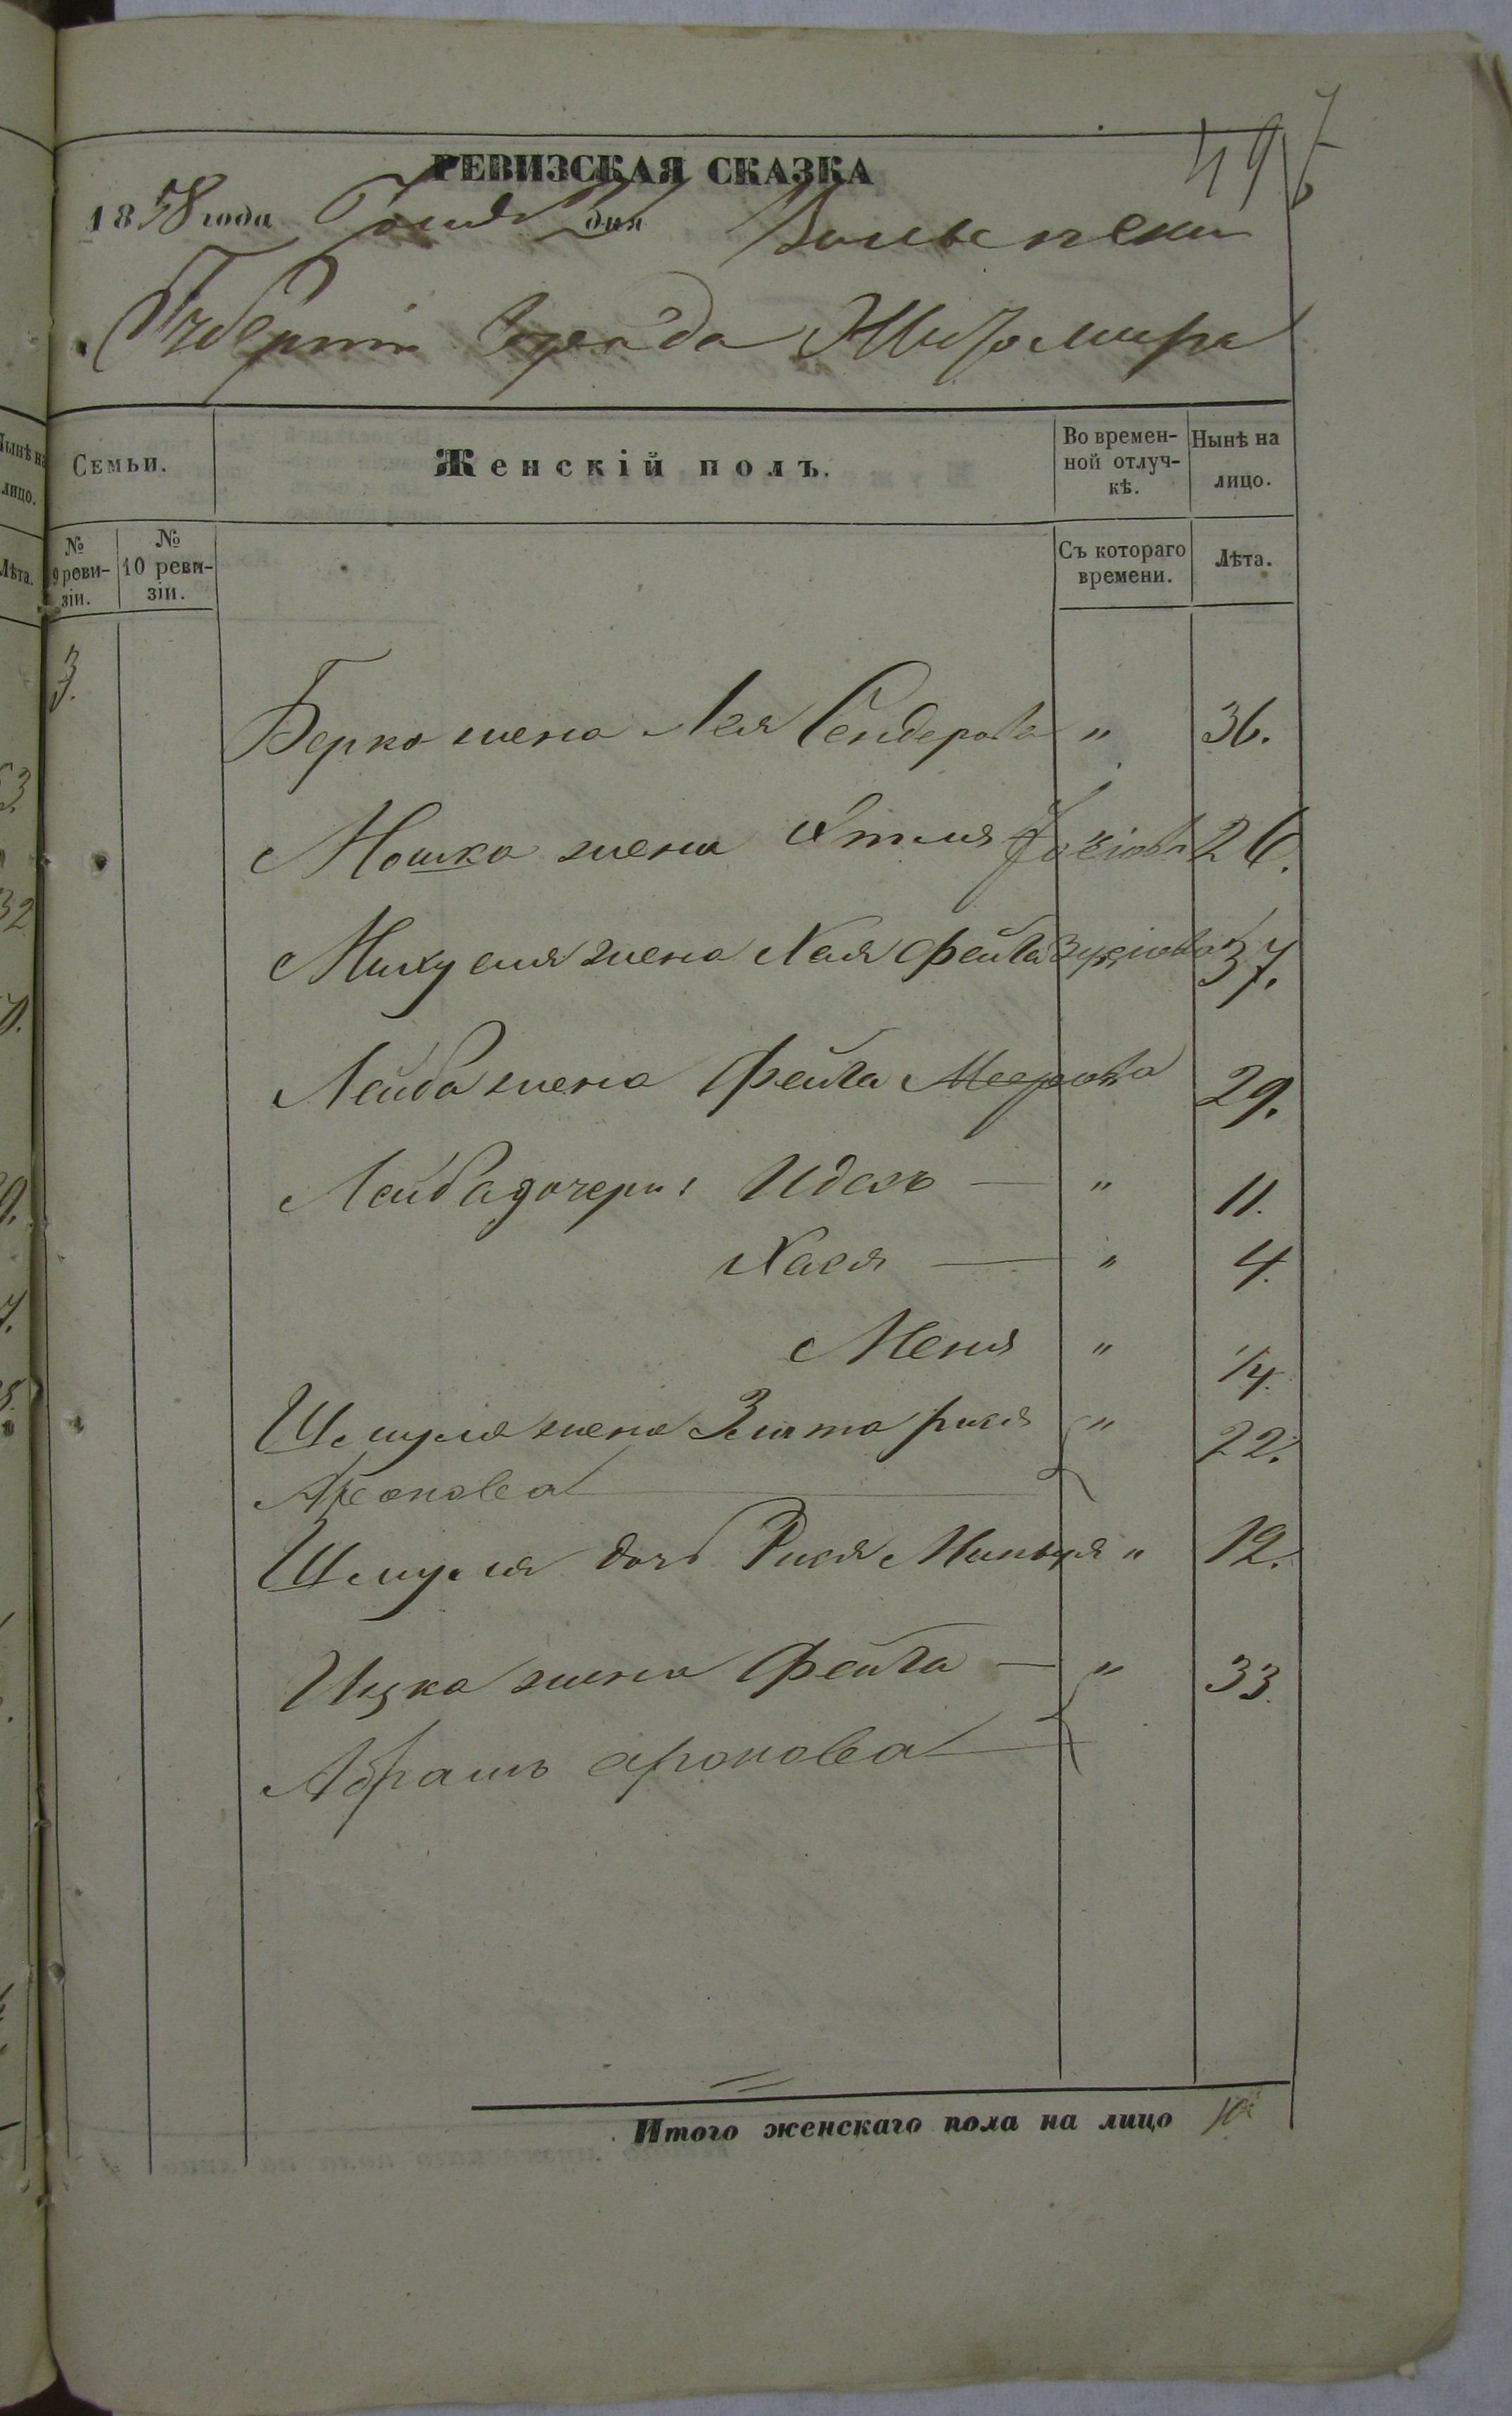 497
РЕВИЗСКАЯ СКАЗКА
1858 года Іюня дня Волынской
Губерніи Города Житомира
Нынѣ на
лицо.
Лѣта.
Семьи.
Женскій полъ.
Во времен-
ной отлуч-
кѣ.
Нынѣ на
лицо.
№
9 реви-
зіи.
№
10 реви-
зіи.
Съ котораго
времени.
Лѣта.
3.
Берка жена Лея Сендерова " 36.
Мошка жена Этля 26.
Михуеля жена Хая Фейга 37.
Лейба жена Фейга Меерова 29.
Лейба дочери: Идесъ — " 11.
Хася — " 4.
Меня " 1/4.
Шмуля жена Злата рися " 22.
Аронова
Шмуля дочь Рися " 12.
Ицка жена Фейга — " 33.
Абрамъ ароновա
Итого женскаго пола на лицо 10